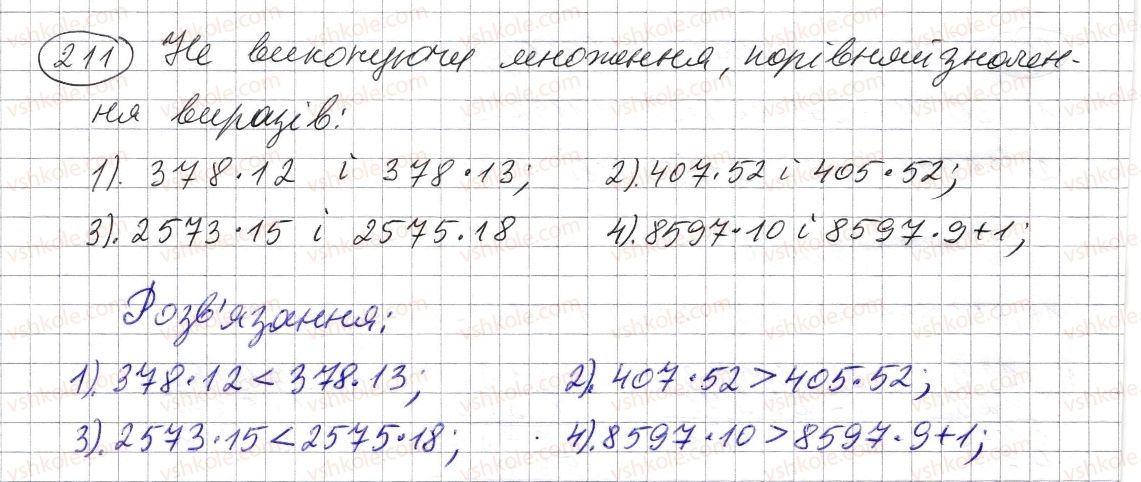 211 Не виконуючи множення, порівняй значен-
ня виразів:
1). 378·12 і 378·13; 2). 407·52 і 405·52;
3). 2573·15 і 2575·18 4). 8597·10 і 8597·9+1;
Розв'язання:
1). 378·12 < 378·13; 2). 407·52 > 405·52;
3). 2573·15 < 2575·18; 4). 8597·10 > 8597·9+1;